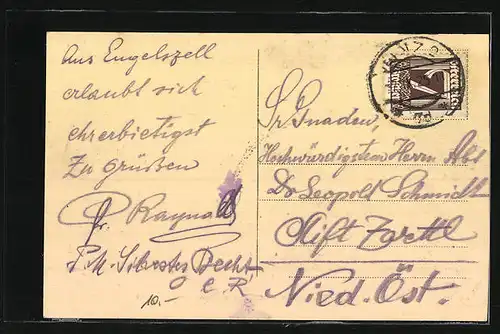 Aus Engelszell
erlaubt sich
ehrerbietigst
Zu Grüßen
Fr. Raynald
P. M. Silvester Becht
O C R
10.-
Sr. Gnaden,
Hochwürdigsten Herrn Abt
Dr Leopold Schmidt
Stift Zwettl
Nied. Öst.